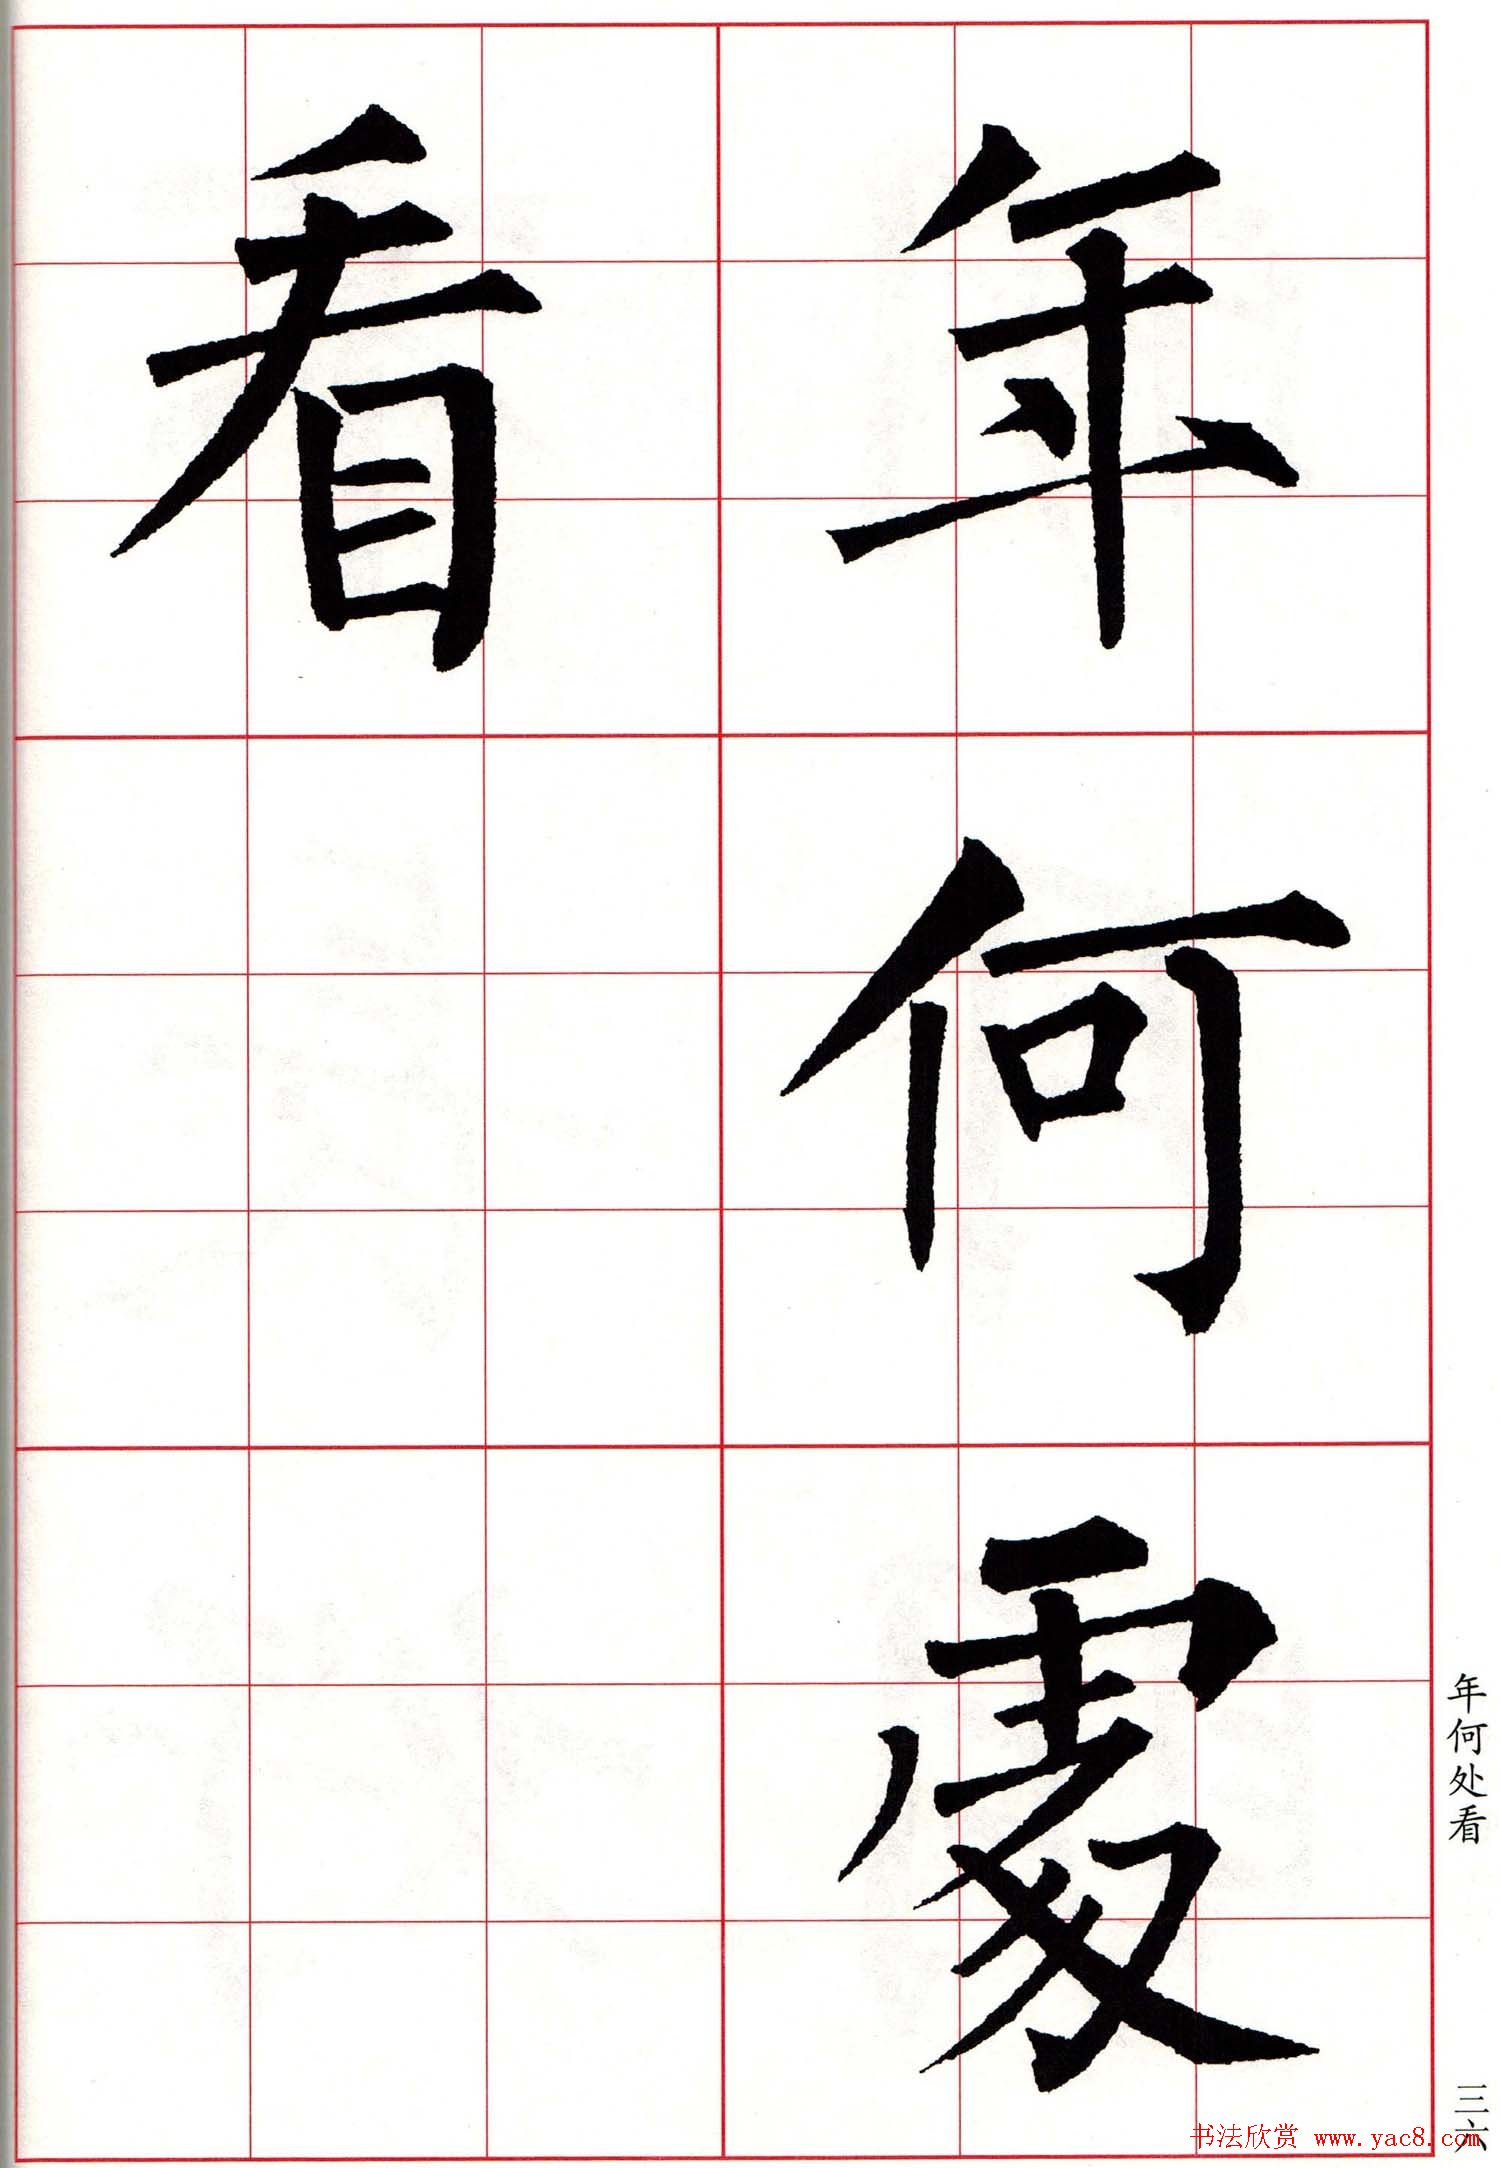 年何處
看
年何处看
三六
书法欣赏 www.yac8.com